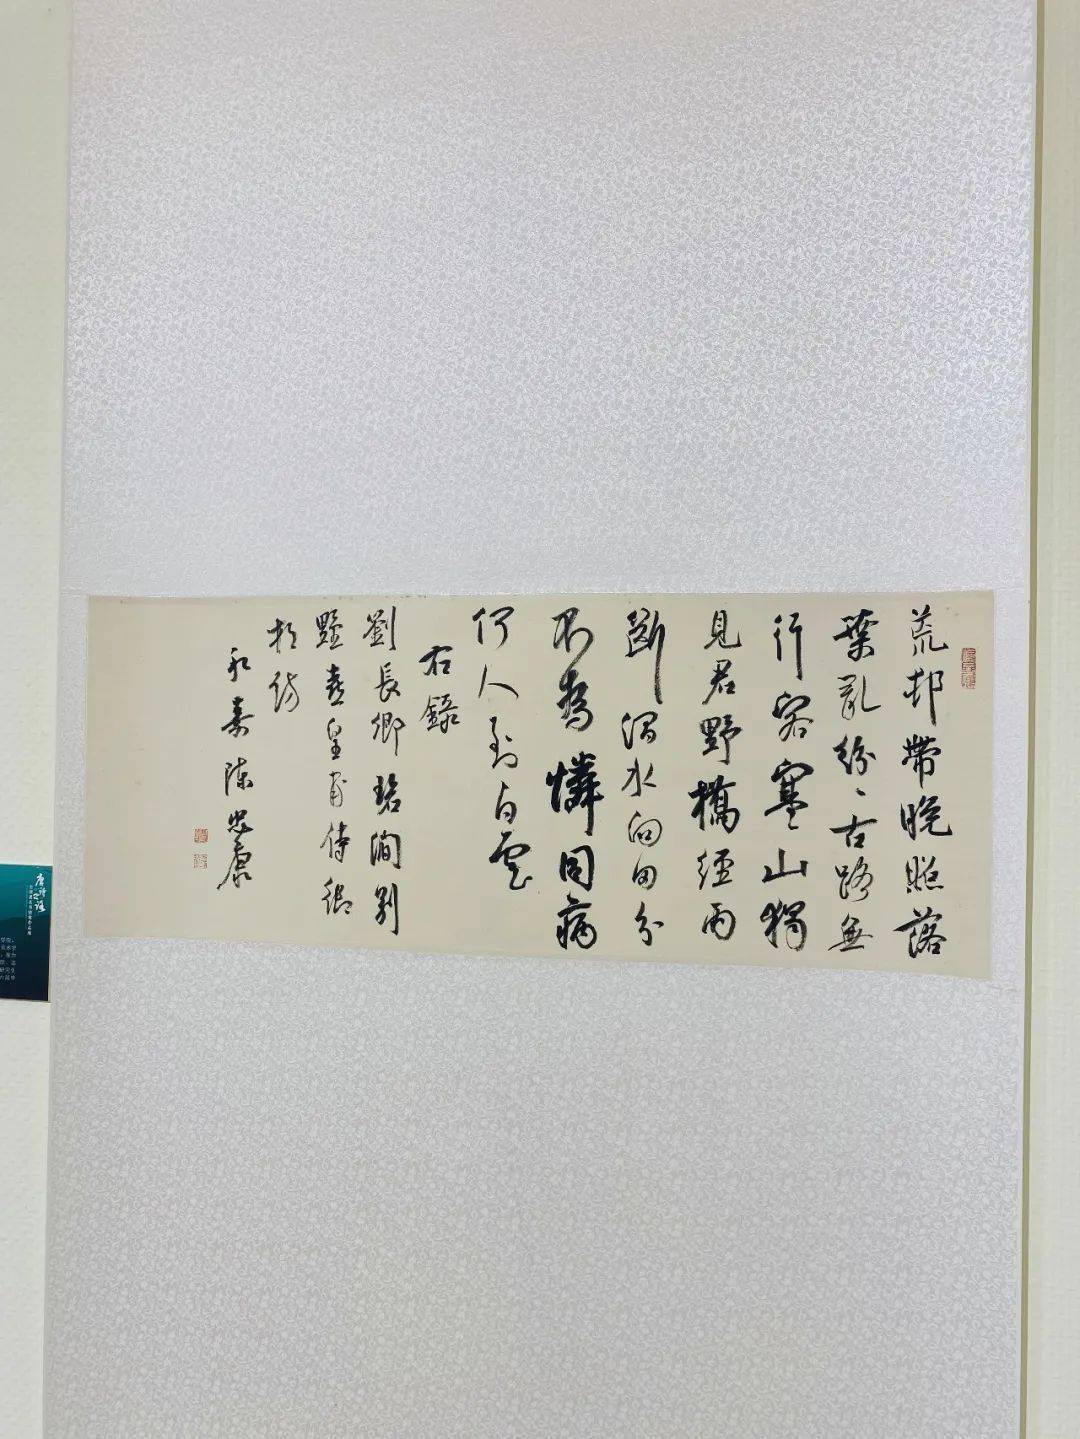 荒邨帶晚照落
葉亂紛々古路無
行客寒山獨
見君野橋經雨
斷澗水向田分
不為憐同病
何人到白雲
右錄
劉長卿碧澗別
墅喜皇甫侍御
相訪
永嘉陳忠康